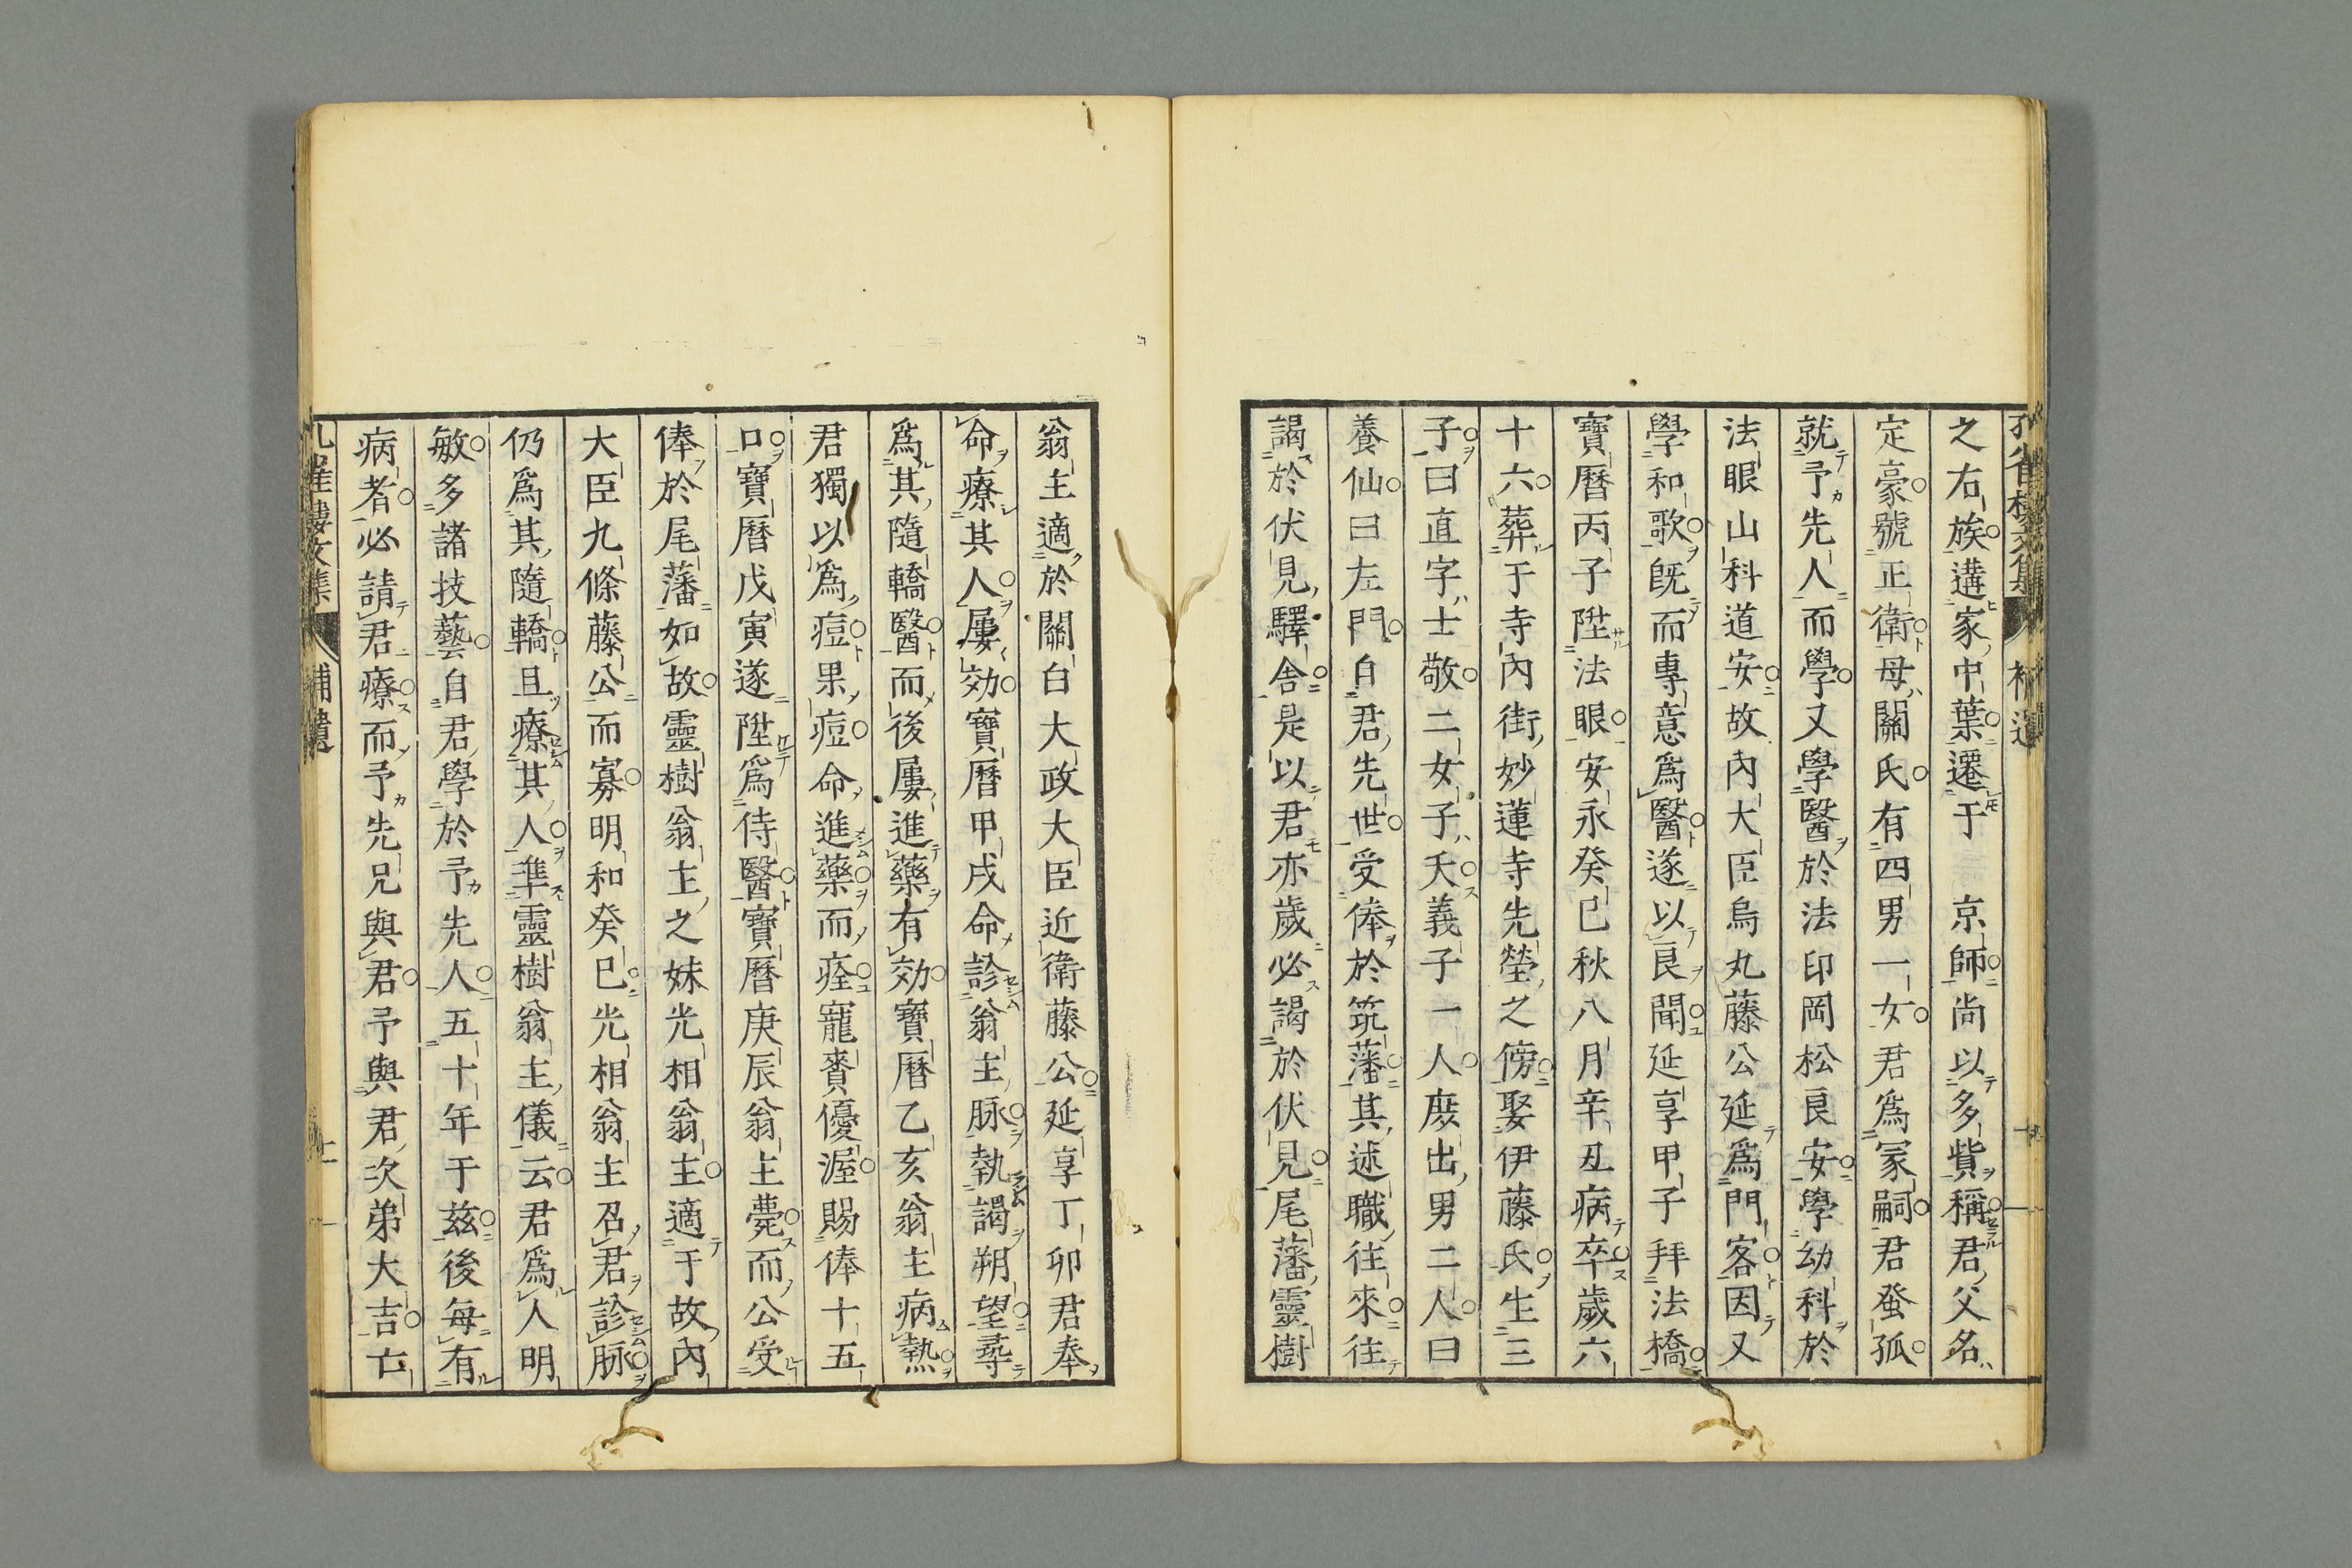 之右族遘家中葉遷于　京師尚以多貲稱君父名
定豪號正衛母關氏有四男一女君爲冢嗣君蚤孤
就予先人而學又學醫於法印岡松良安學幼科於
法眼山科道安故內大臣烏丸藤公延爲門客因又
學和歌旣而專意爲醫遂以良聞延享甲子拜法橋
寶曆丙子陞法眼安永癸巳秋八月辛丑病卒歲六
十六葬于寺內街妙蓮寺先塋之傍娶伊藤氏生三
子曰直字士敬二女子夭義子一人庶出男二人曰
養仙曰左門自君先世受俸於筑藩其述職往來往
謁於伏見驛舍是以君亦歲必謁於伏見尾藩靈樹
翁主適於關白大政大臣近衛藤公延享丁卯君奉
命療其人屢効寶曆甲戌命診翁主脉執謁朔望尋
爲其隨轎醫而後屢進藥有効寶曆乙亥翁主病熱
君獨以爲痘果痘命進藥而痊寵賚優渥賜俸十五
口寶曆戊寅遂陞爲侍醫寶曆庚辰翁主薨而公受
俸於尾藩如故靈樹翁主之妹光相翁主適于故內
大臣九條藤公而寡明和癸巳光相翁主召君診脉
仍爲其隨轎且療其人準靈樹翁主儀云君爲人明
敏多諸技藝自君學於予先人五十年于茲後每有
病者必請君療而予先兄與君予與君次弟大吉亡
孔雀樓文集　補遺